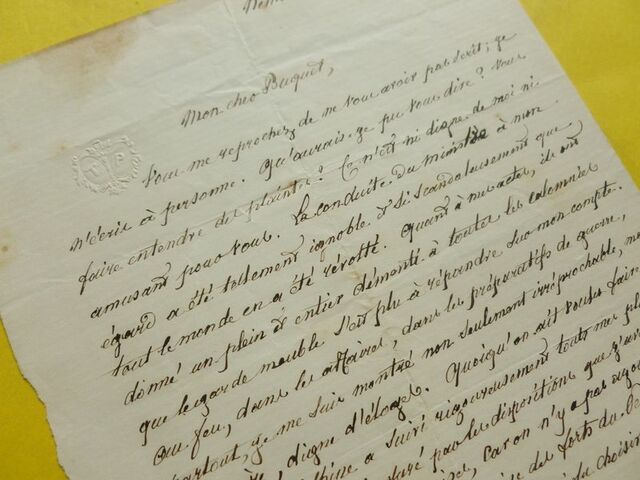 Mon cher Buquet,
Vous me reprochez de ne vous avoir pas écrit; je
n'écris à personne. Qu'aurais-je pu vous dire? Vous
faire entendre des plaintes? Ce n'est ni digne de moi ni
amusant pour vous. La conduite du ministre à mon
égard a été tellement ignoble & si scandaleusement que
tout le monde en a été révolté. Quant à mes actes, ils ont
donné un plein & entier démenti à toutes les calomnies
que le garde meuble s'est plu à répandre sur mon compte.
Au feu, dans les affaires, dans les préparatifs de guerre,
partout, je me suis montré non seulement irréprochable, mais
digne d'éloges. Quoiqu'on ait voulu faire
a suivi rigoureusement toutes mes
par les dispositions que j'avais
car on n'y a pas
des forts du
choisir